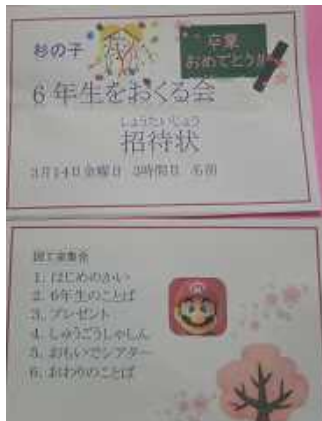 杉の子
卒業
おめでとう!!
6年生をおくる会
しょうたいじょう
招待状
3月14日金曜日 3時間目 名前
1. はじめのかい
2. 6年生のことば
3. プレゼント
4. しゅうごうしゃしん
5. おもいでシアター
6. おわりのことば